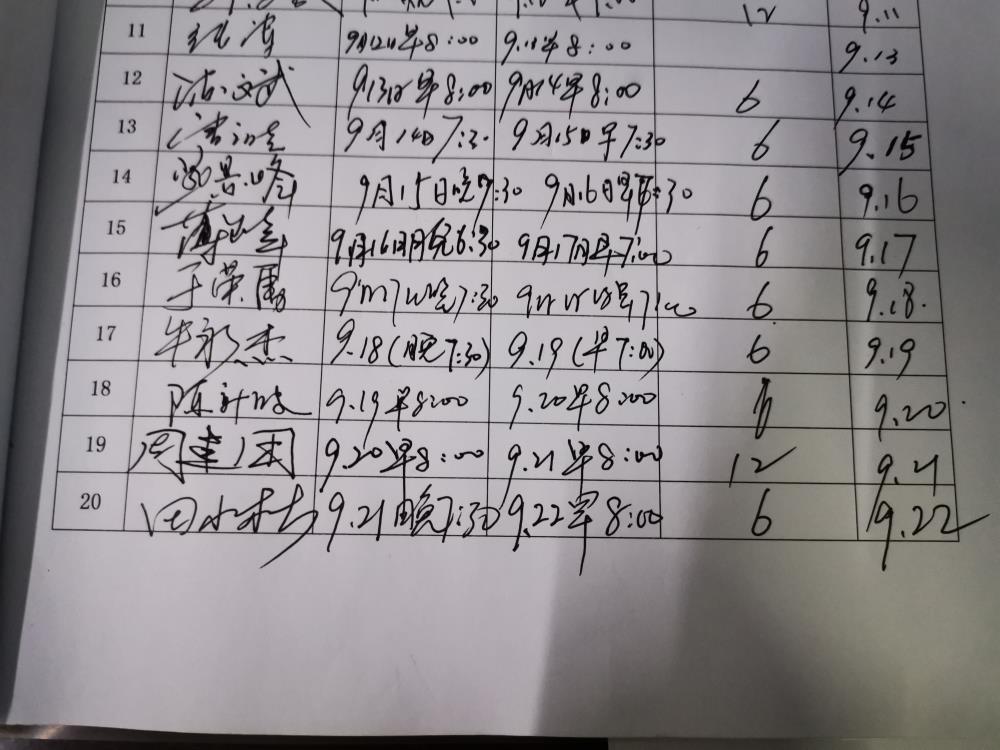 12 9.11
11 9月12日早8:00 9.13早8:00 9.13
12 沈文武 9.13日早8:00 9月14早8:00 6 9.14
13 9月14日7:30 9月15日早7:30 6 9.15
14 9月15日晚7:30 9月16日早 :30 6 9.16
15 9月16日 晚6:30 9月17日早7:00 6 9.17
16 于荣 晚7:30 早7:00 6 9.18.
17 牛永杰 9.18(晚7:30) 9.19(早7:00) 6 9.19
18 陈 9.19早8:00 9.20早8:00 9.20
19 周建国 9.20早8:00 9.21早8:00 12 9.21
20 田 9.21晚7:30 9.22早8:00 6 9.22